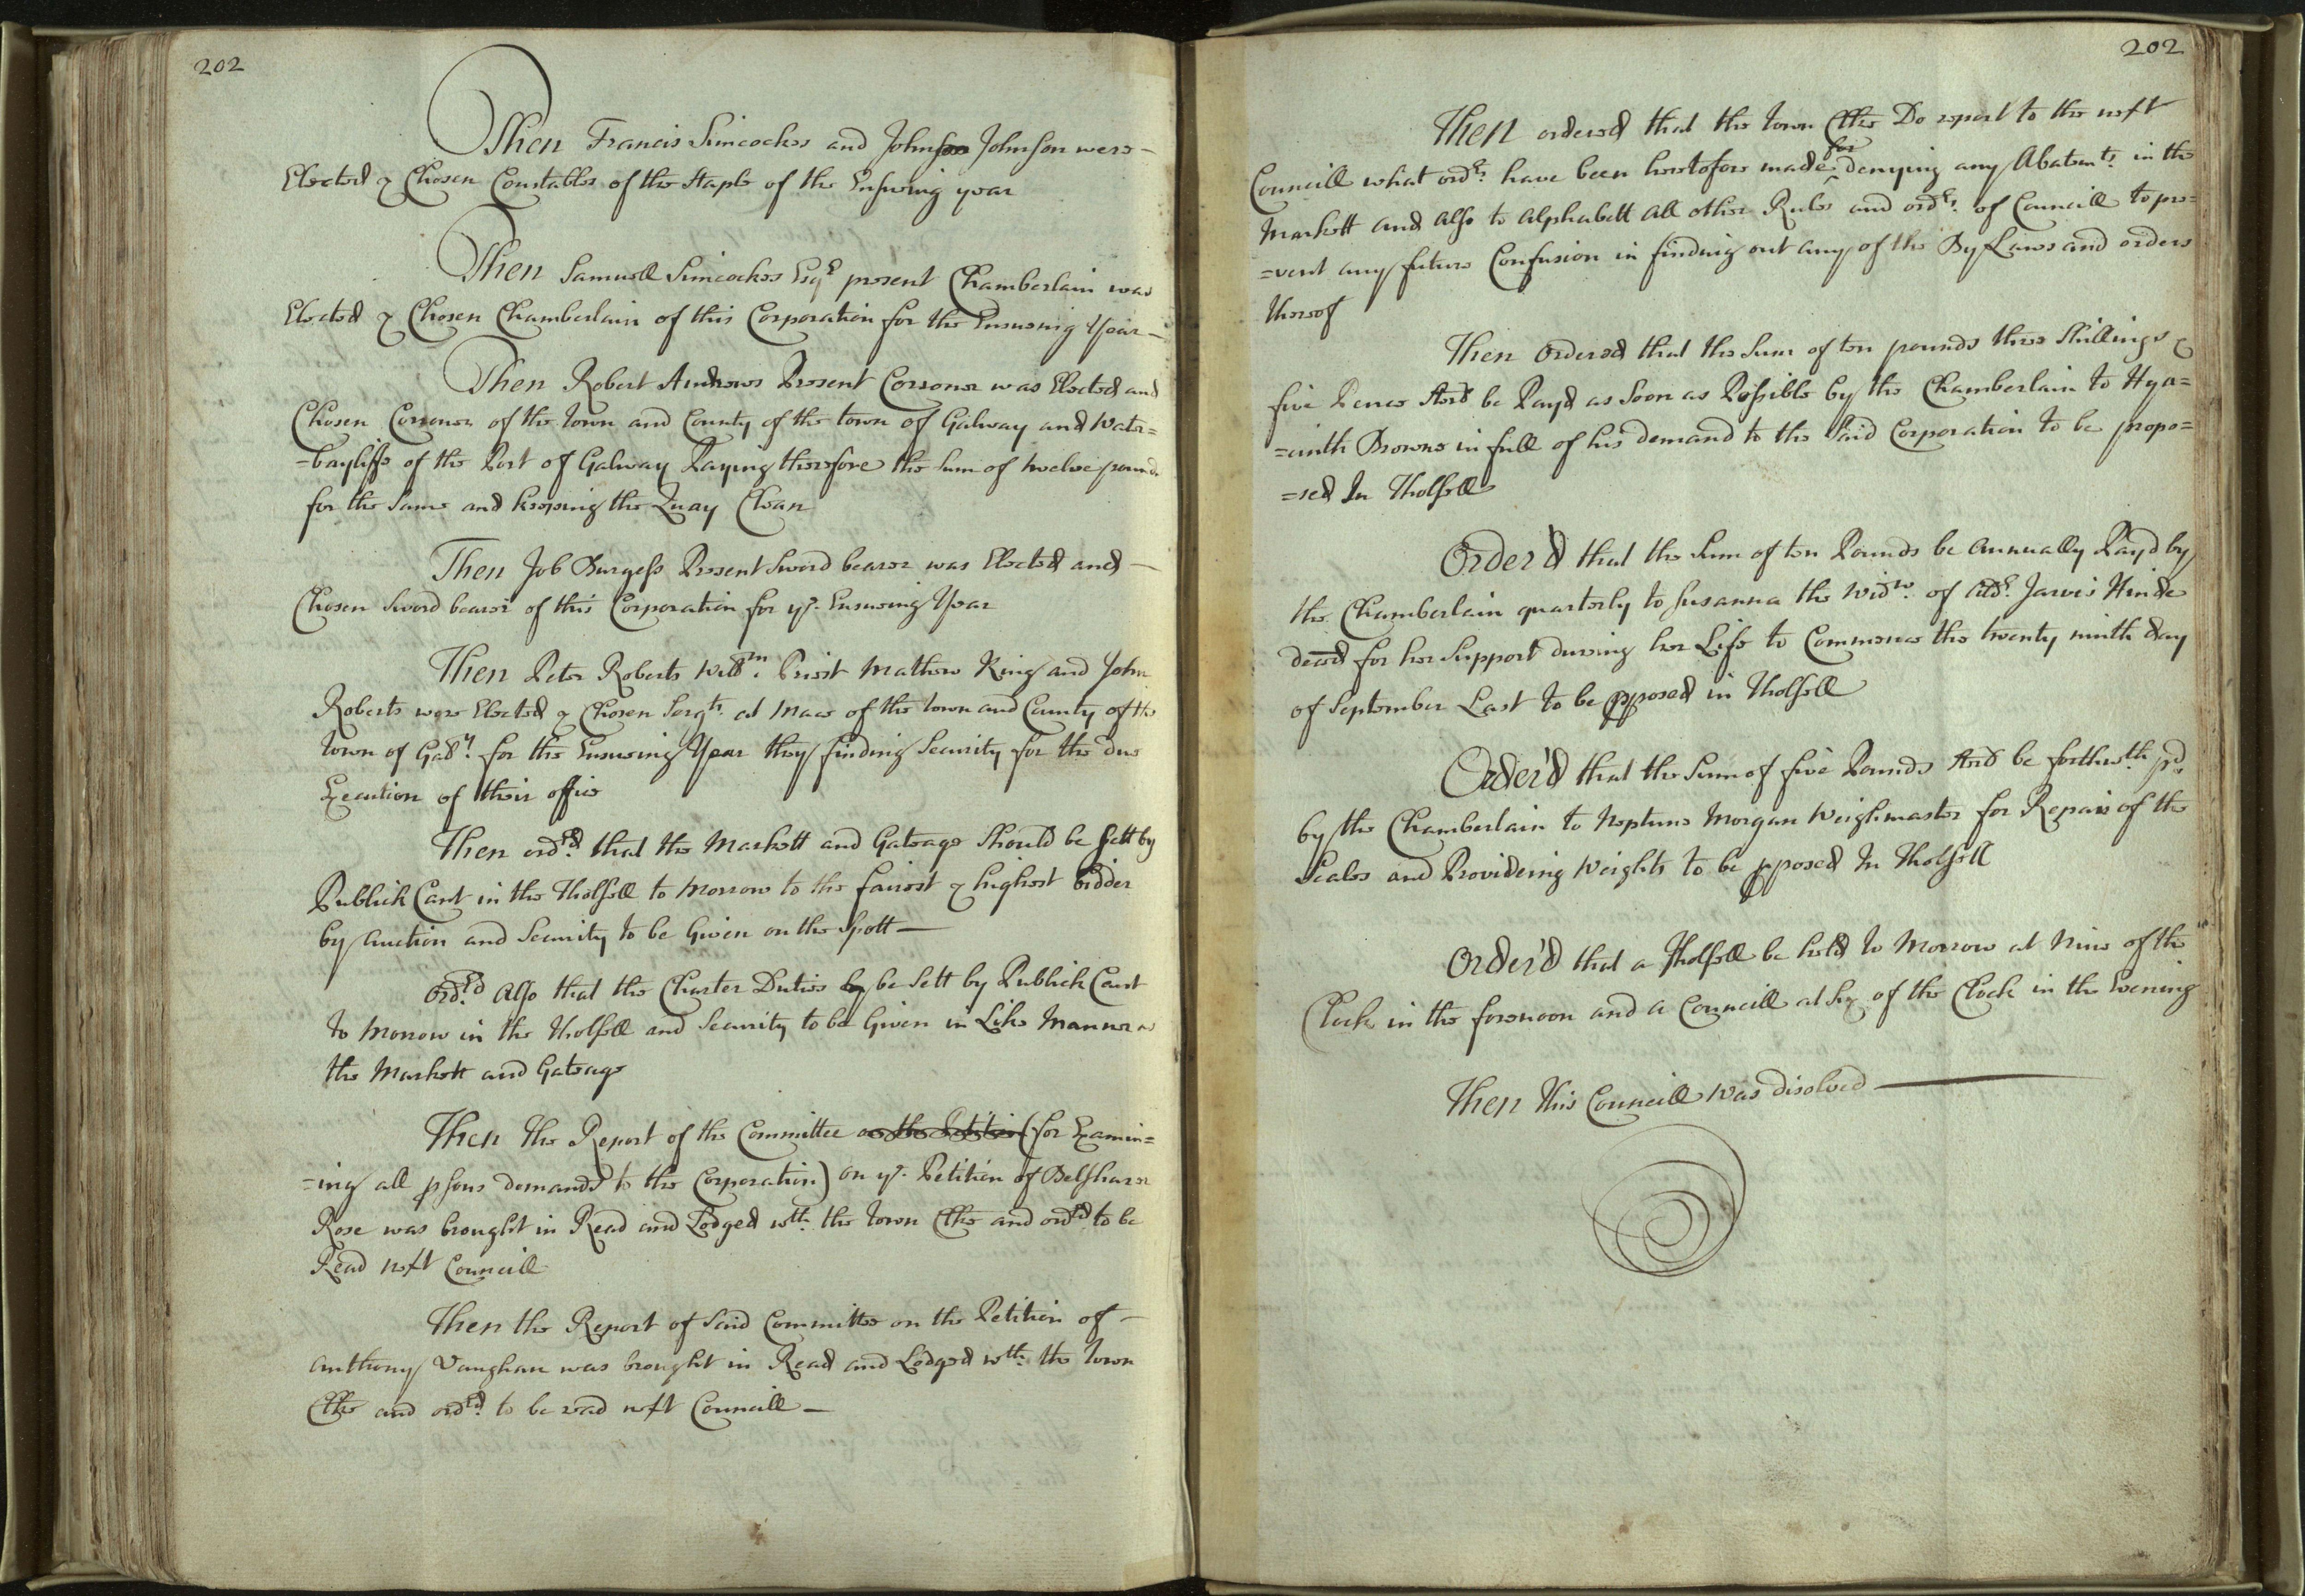 202
Then Francis Simcockes and John Johnson were
Elected & Chosen Constables of the Staple of the Ensuring year
Then Samuell Simcockes Esqr present Chamberlain was
Elected & Chosen Chamberlain of this Corporation for the Ensueing Year
Then Robert Andrews Present Corroner was Elected and
Chosen Corroner of the Town and County of the town of Galway and Water=
=bayliffe of the Port of Galway Paying therefore the Sum of twelve pounds
for the Same and keeping the Quay Clean
Then Job Burgess Present Sword bearer was Elected and
Chosen Sword bearer of this Corporation for ye Ensueing Year
Then Peter Roberts Willm Priest Mathew King and John
Roberts were Elected & Chosen Sergts at Mace of the town and County of the
town of Gally for the Ensueing Year they finding Security for the due
Execution of their office
Then ordrd that the Markett and Gateage Should be Sett by
Publick Cant in the Tholsell to Morrow to the fairest & highest bidder
by Auction and Security to be Given on the Spott
Ordrd Also that the Charter Duties by be Sett by Publick Cant
to Morrow in the Tholsell and Security to be Given in Like Manner as
the Markett and Gateage
Then the Report of the Committee on the Petition (for Examin=
=ing all psons demands to the Corporation) on ye Petition of Belshazer
Rose was brought in Read and Lodged wth the Town Clke and ordrd to be
Read next Councill
Then the Report of Said Committee on the Petition of
Anthony Vaughan was brought in Read and Lodged wth the Town
Clke and ordrd to be read next Councill
202
Then ordered that the Town Clke Do report to the next
Councill what ordrs have been heretofore made for denying any Abatemts in the
Markett and Also to Alphabett All other Rules and ordrs of Councill to pre=
=vent any future Confusion in finding out any of the By Laws and orders
thereof
Then Ordered that the Sum of ten pounds three Shillings &
five Pence Sterd be Payd as Soon as Possible by the Chamberlain to Hya=
=cinth Browne in full of his demand to the Said Corporation to be propo=
=sed In Tholsell
Order'd that the Sum of ten Pounds be Annually Payd by
the Chamberlain quarterly to Susanna the Widw of Aldr Jarvis Hinde
decd for her Support during her Life to Commence the twenty ninth day
of September Last to be pposed in Tholsell
Order'd that the Sum of five Pounds Sterd be forthwth pd
by the Chamberlain to Neptune Morgan Weighmaster for Repair of the
Scales and Providering Weights to be pposed In Tholsell
Order'd that a Tholsell be held to Morrow at Nine of the
Clock in the forenoon and a Councill at Six of the Clock in the Evening
Then this Councill was disolved